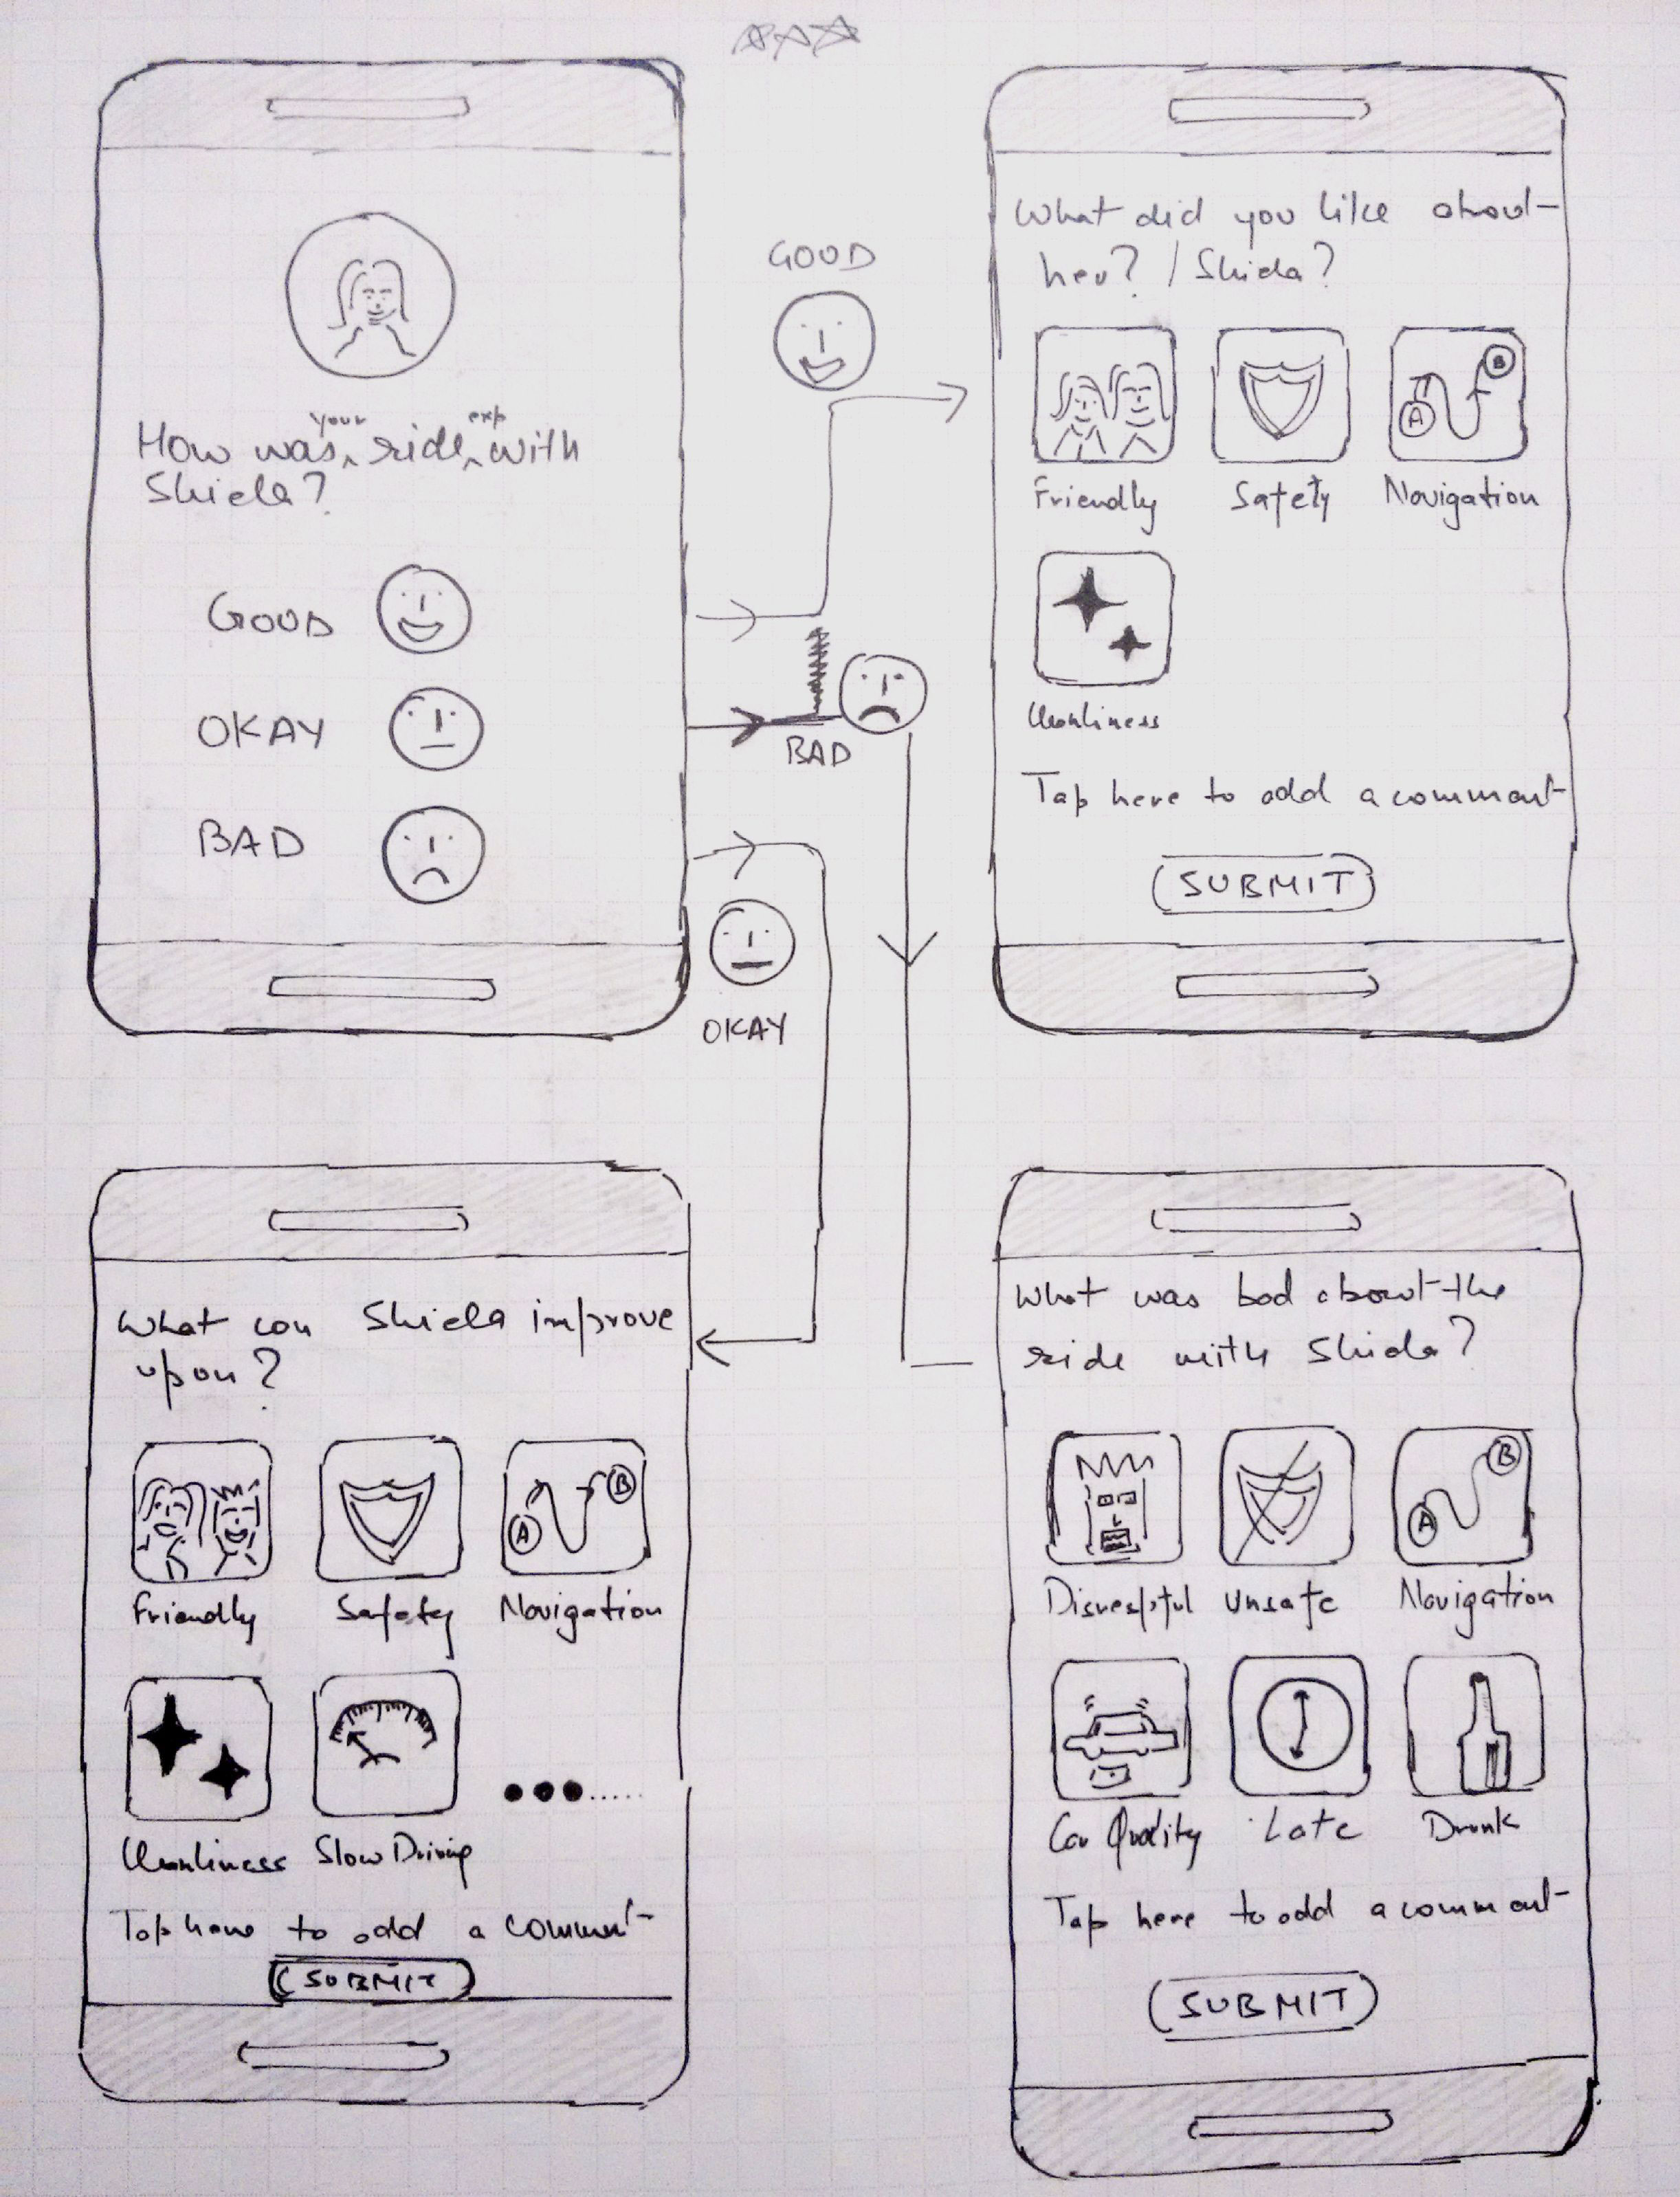 How was your ride exp with
Shiela?
GOOD
OKAY
BAD
GOOD
BAD
OKAY
What did you like about
her? / Shiela?
Friendly
Safety
Navigation
Cleanliness
Tap here to add a comment
SUBMIT
What can Shiela improve
upon?
Friendly
Safety
Navigation
Cleanliness
Slow Driving
Tap here to add a comment
SUBMIT
What was bad about the
ride with Shiela?
Disrespful
Unsafe
Navigation
Car Quality
Late
Drunk
Tap here to add a comment
SUBMIT
A
B
A
B
A
B